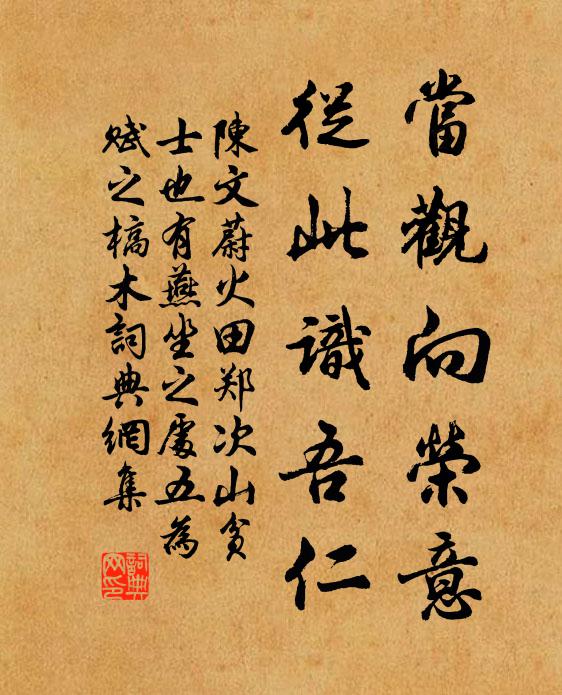 當觀向榮意
從此識吾仁
陳文蔚火田郑次山貧
士也有燕坐之處五為
賦之槁木詞典網集
詞典網印